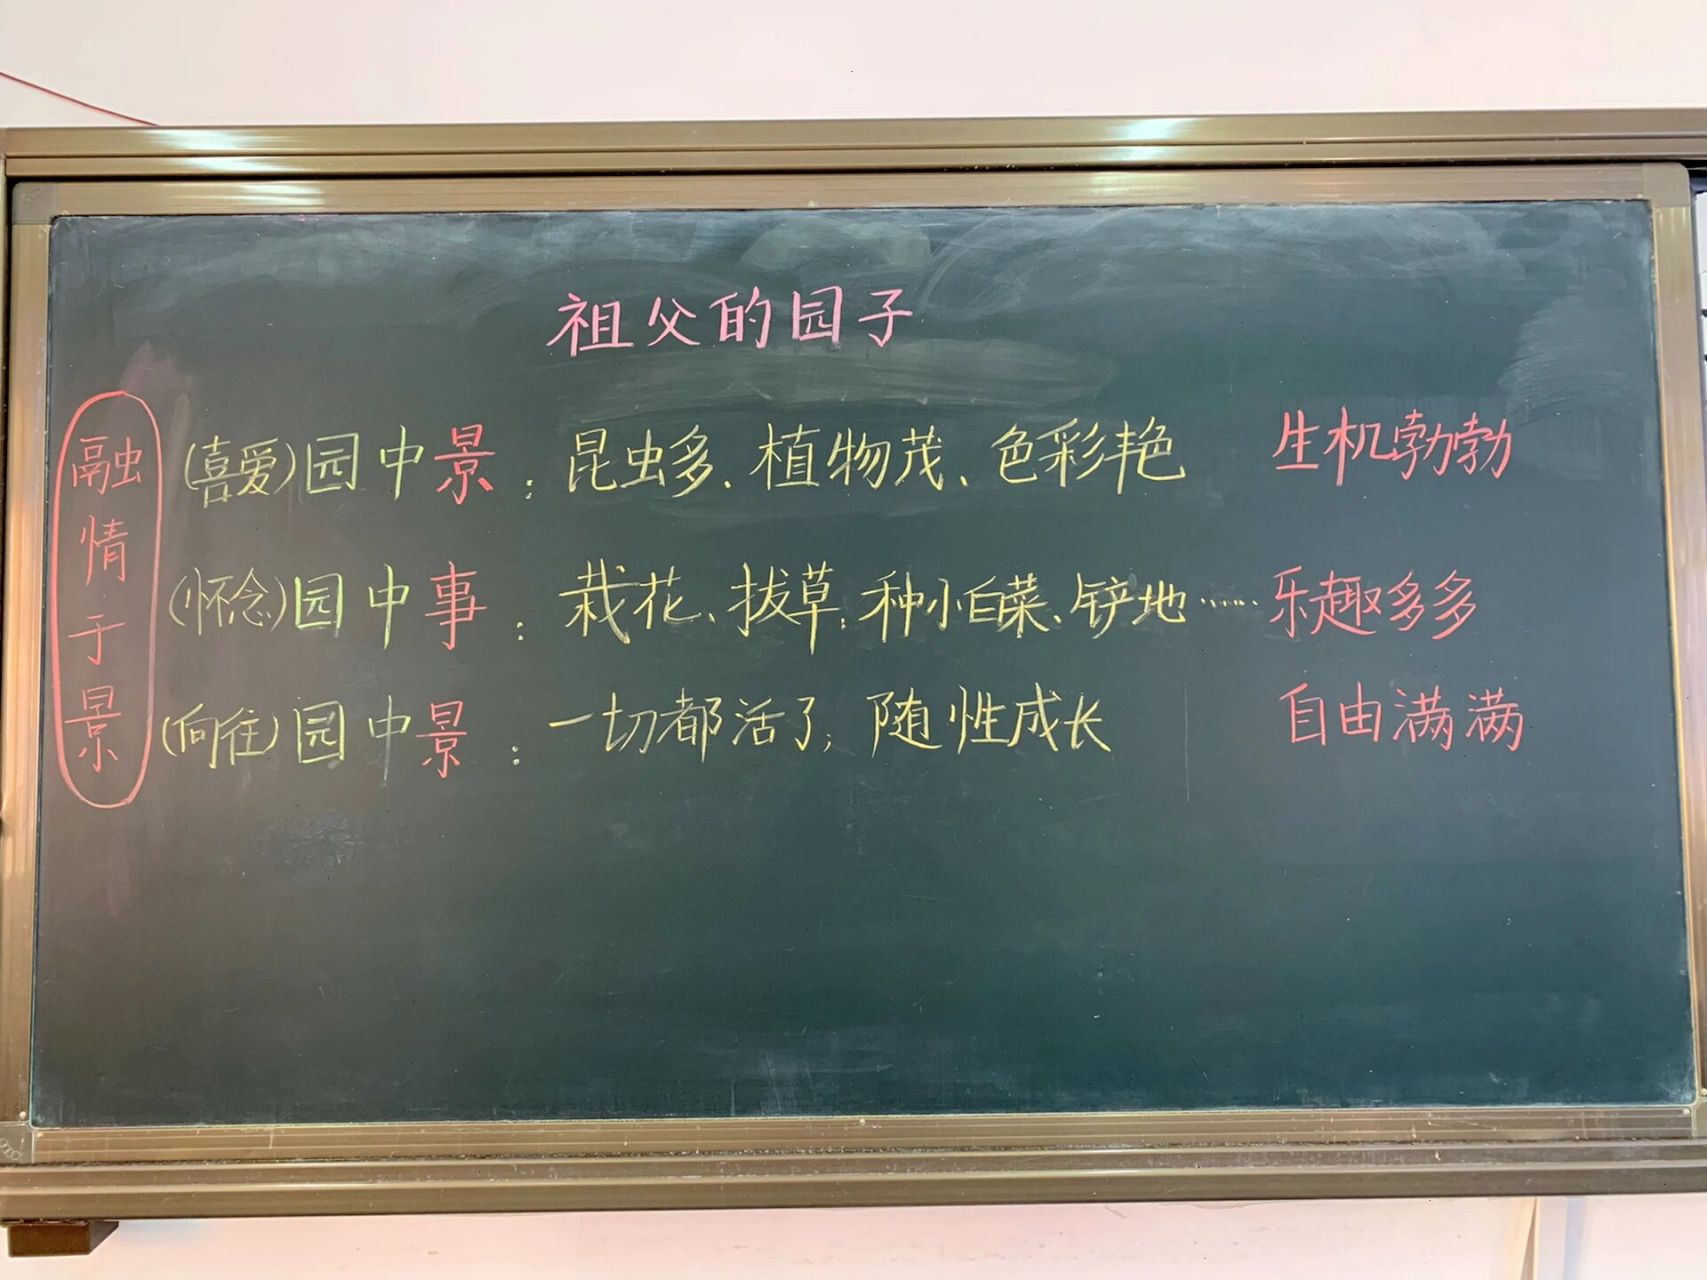 祖父的园子
融情于景
(喜爱)园中景:昆虫多、植物茂、色彩艳 生机勃勃
(怀念)园中事:栽花、拔草、种小白菜、铲地…… 乐趣多多
(向往)园中景:一切都活了,随性成长 自由满满